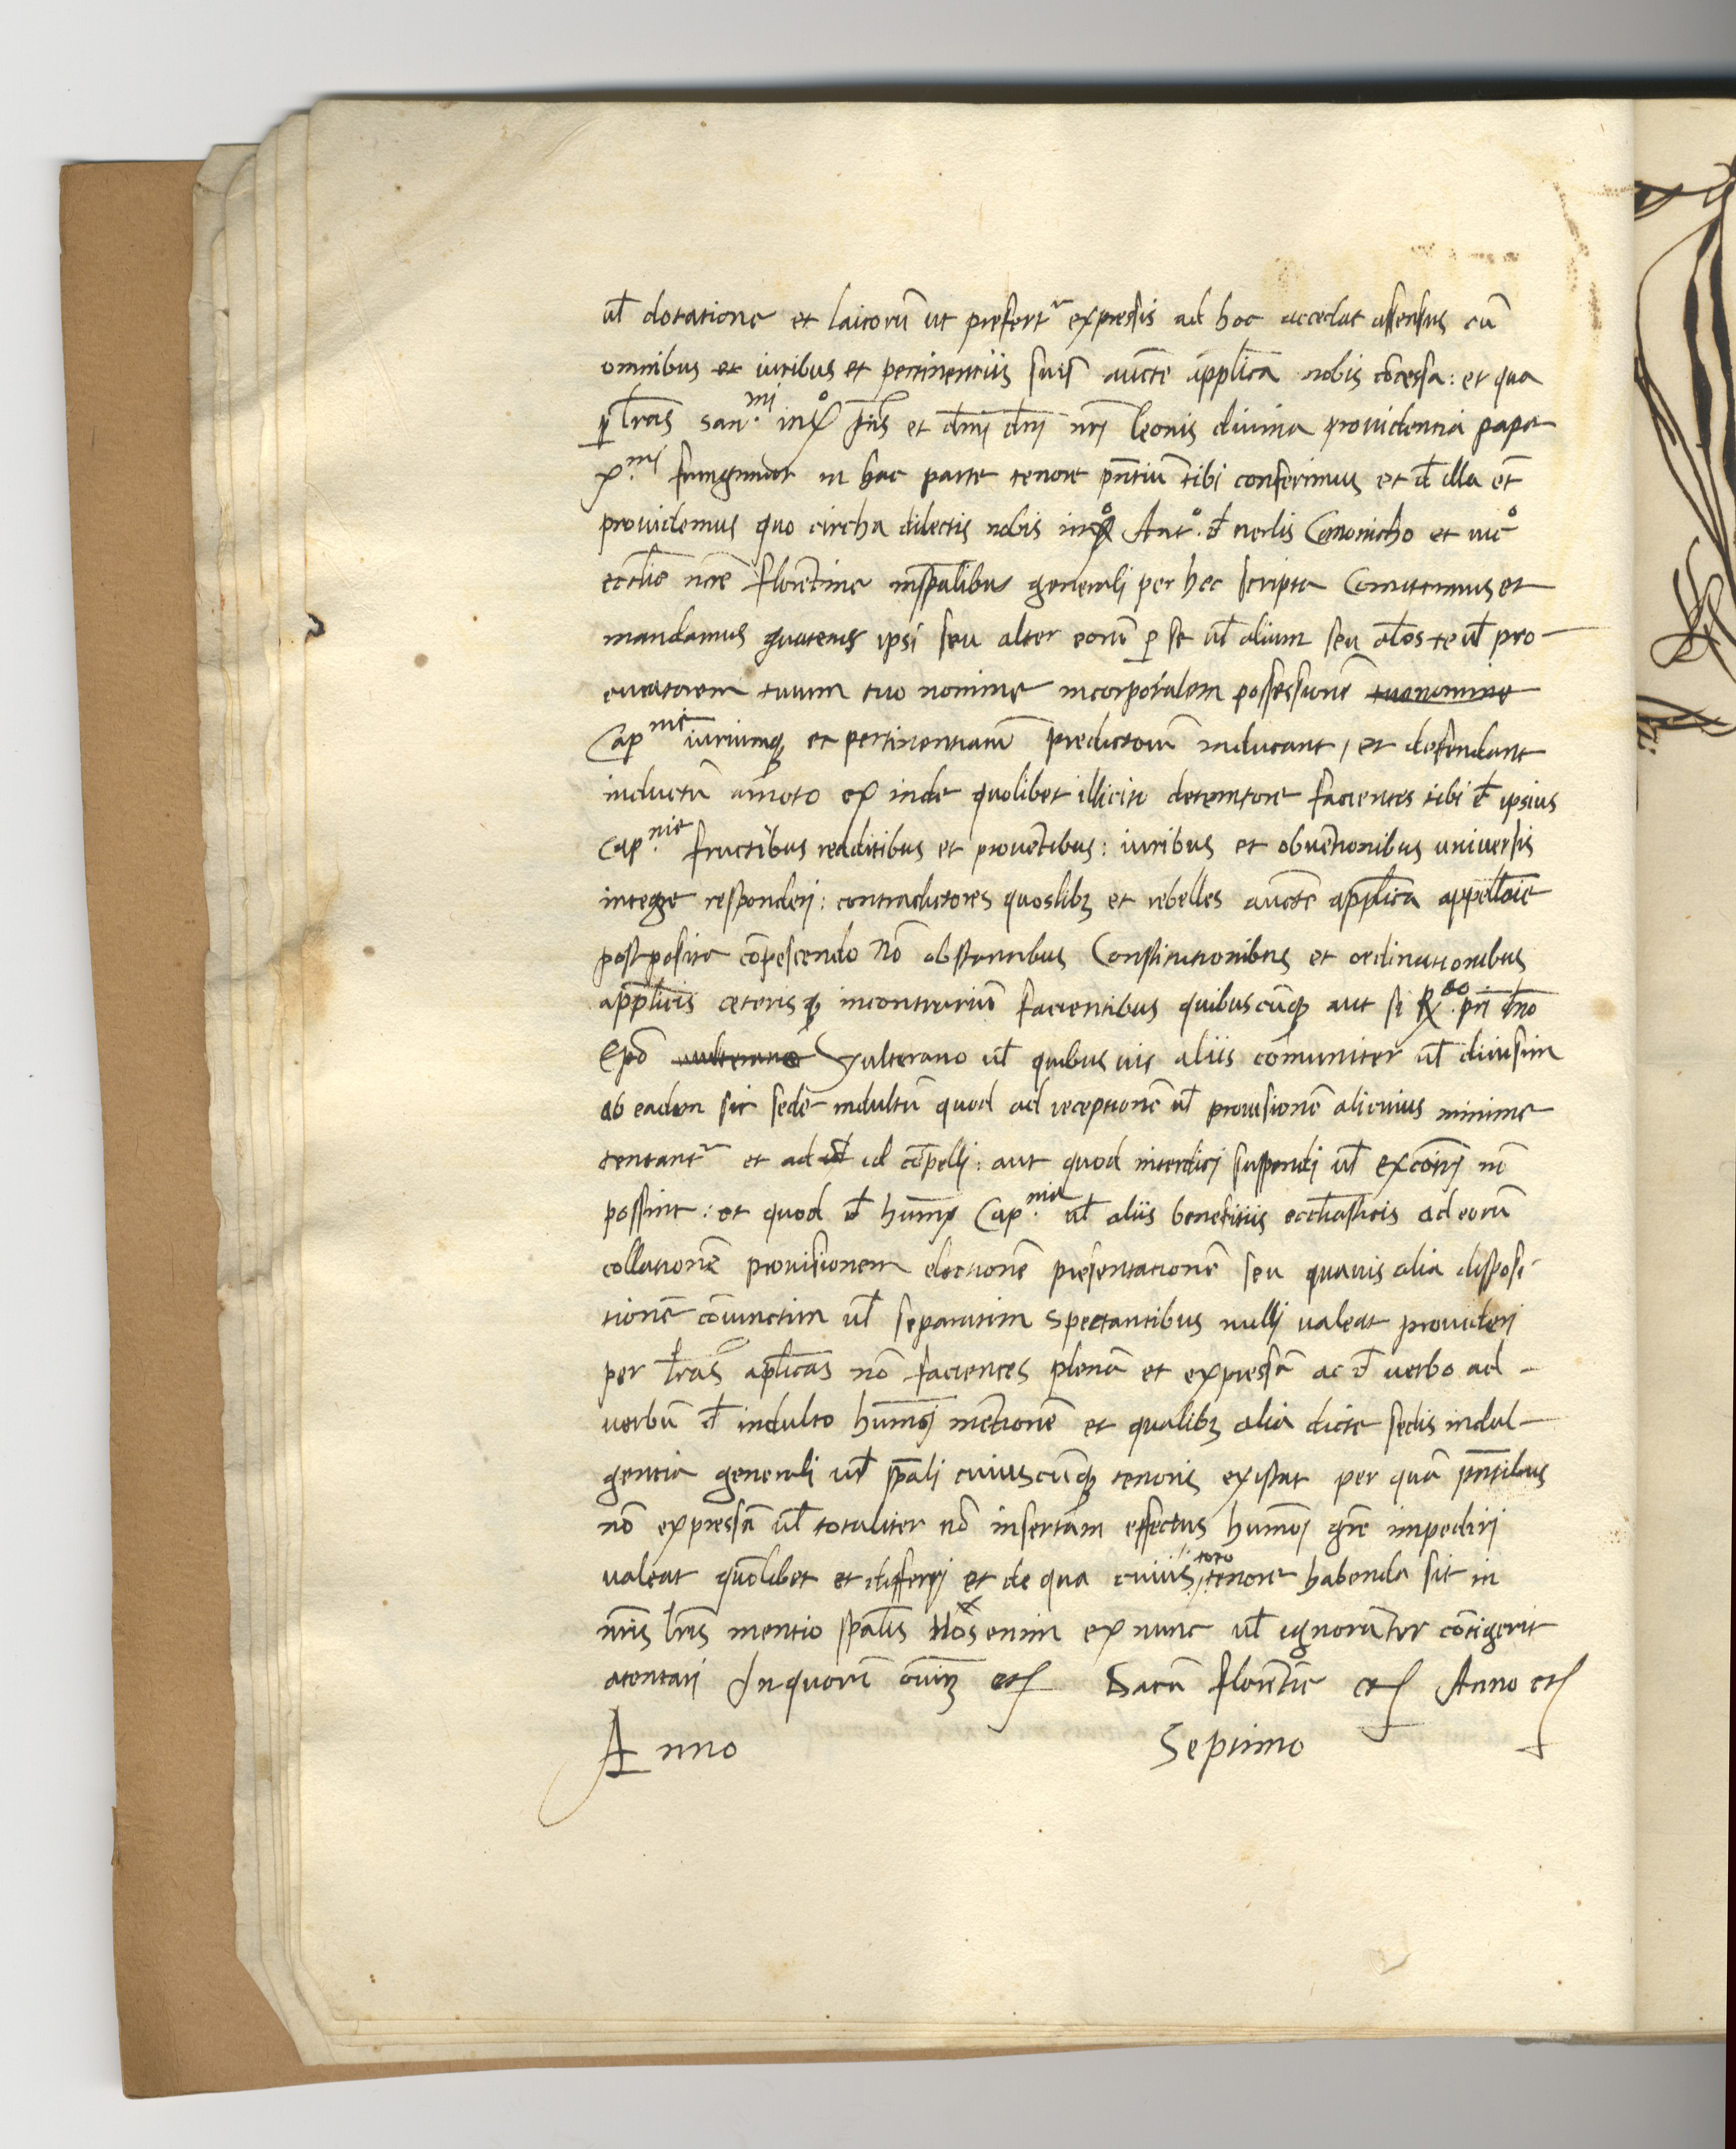 ul dotatione et laicorū ut prefert expressis ad hoc accedat assensus cū
omnibus et iuribus et pertinentiis suis aucte applica nobis cōcessa: et qua
p lras san.mi inx̊ pris et dnj dnj nrj leonis diuina prouidentia pape
x.mi fungimur in hac parte tenore pntiū tibi conferimus et d illa et
prouidemus quo circha dilectis nobis inxo Anto. d nerlis Canonicho et uico
ecclie nre florentine inspalibus generali per hec scripta Comittimus et
mandamus quatenus ipsi seu alter eorū p se ul alium seu alios te ul pro-
curatorem tuum tuo nomine incorporalem possessionē tuo nomine
Capnie iuriumq et pertinentiarū predictorū inducant, et defendant
inductū amoto ex inde quolibet illicito detemtore facientes tibi d ipsius
Cap.nie fructibus redditibus et prouētibus: iuribus et obuētionibus uniuersis
integre responderj: contradictores quoslibz et rebelles aucte applica appellōie
postposita cōpescendo nō obstantibus Constitutionibus et ordinationibus
applicis ceterisq incontrariū facientibus quibuscūq aut si R.do pri dno
Epō uulterano Vulterano ul quibus uis aliis comuniter ul diuisim
ab eadem sit sede indultū quod ad receptionē ul prouisionē alicuius minime
teneant et ad id id cōpellj: aut quod interdicj suspendj ul excōicarj nō
possint: et quod d humoj Cap.nia ul aliis benefitiis eccliasticis ad eorū
collationē prouisionem electionē presentationē seu quauis alia disposi-
tionē cōiunctim ul separatim spectantibus nullj ualeat prouiderj
per lras aplicas nō facientes plenā et expressā ac d uerbo ad-
uerbū d indulto humoj mētionē et qualibz alia dicte sedis indul-
gentia generali ul spāli cuiuscūq tenoris existat per quā pntibus
nō expressā ul totaliter nō insertam effectus humoj grē impedirj
ualeat quōlibet et differrj et de qua cuius toto tenore habenda sit in
nris lris mentio spālis Nos enim ex nunc ul ignorāter cōtigerit
atentari In quorū omniū etc Datū florētie etc Anno etc
Anno Septimo